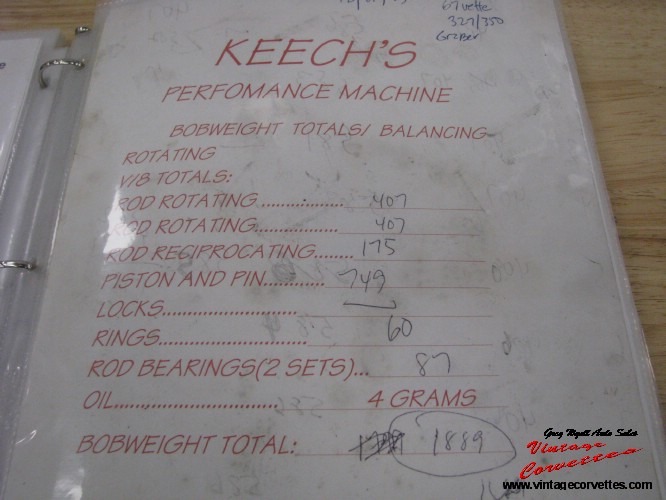 67vette
327/350
KEECH'S
PERFOMANCE MACHINE
BOBWEIGHT TOTALS/ BALANCING
ROTATING
V/8 TOTALS:
ROD ROTATING.................. 407
ROD ROTATING.................. 407
ROD RECIPROCATING........ 175
PISTON AND PIN............ 749
LOCKS........................... —
RINGS............................. 60
ROD BEARINGS(2 SETS)... 87
OIL................................ 4 GRAMS
BOBWEIGHT TOTAL: 1889
Vintage
Corvettes
www.vintagecorvettes.com